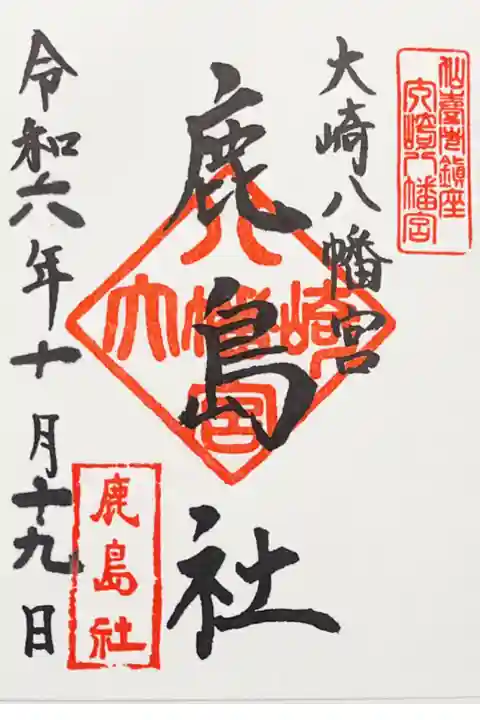 仙臺鎮座
大崎八幡宮
大崎八幡宮
鹿島社
八
大幡崎
宮
鹿島社
令和六年十月十九日